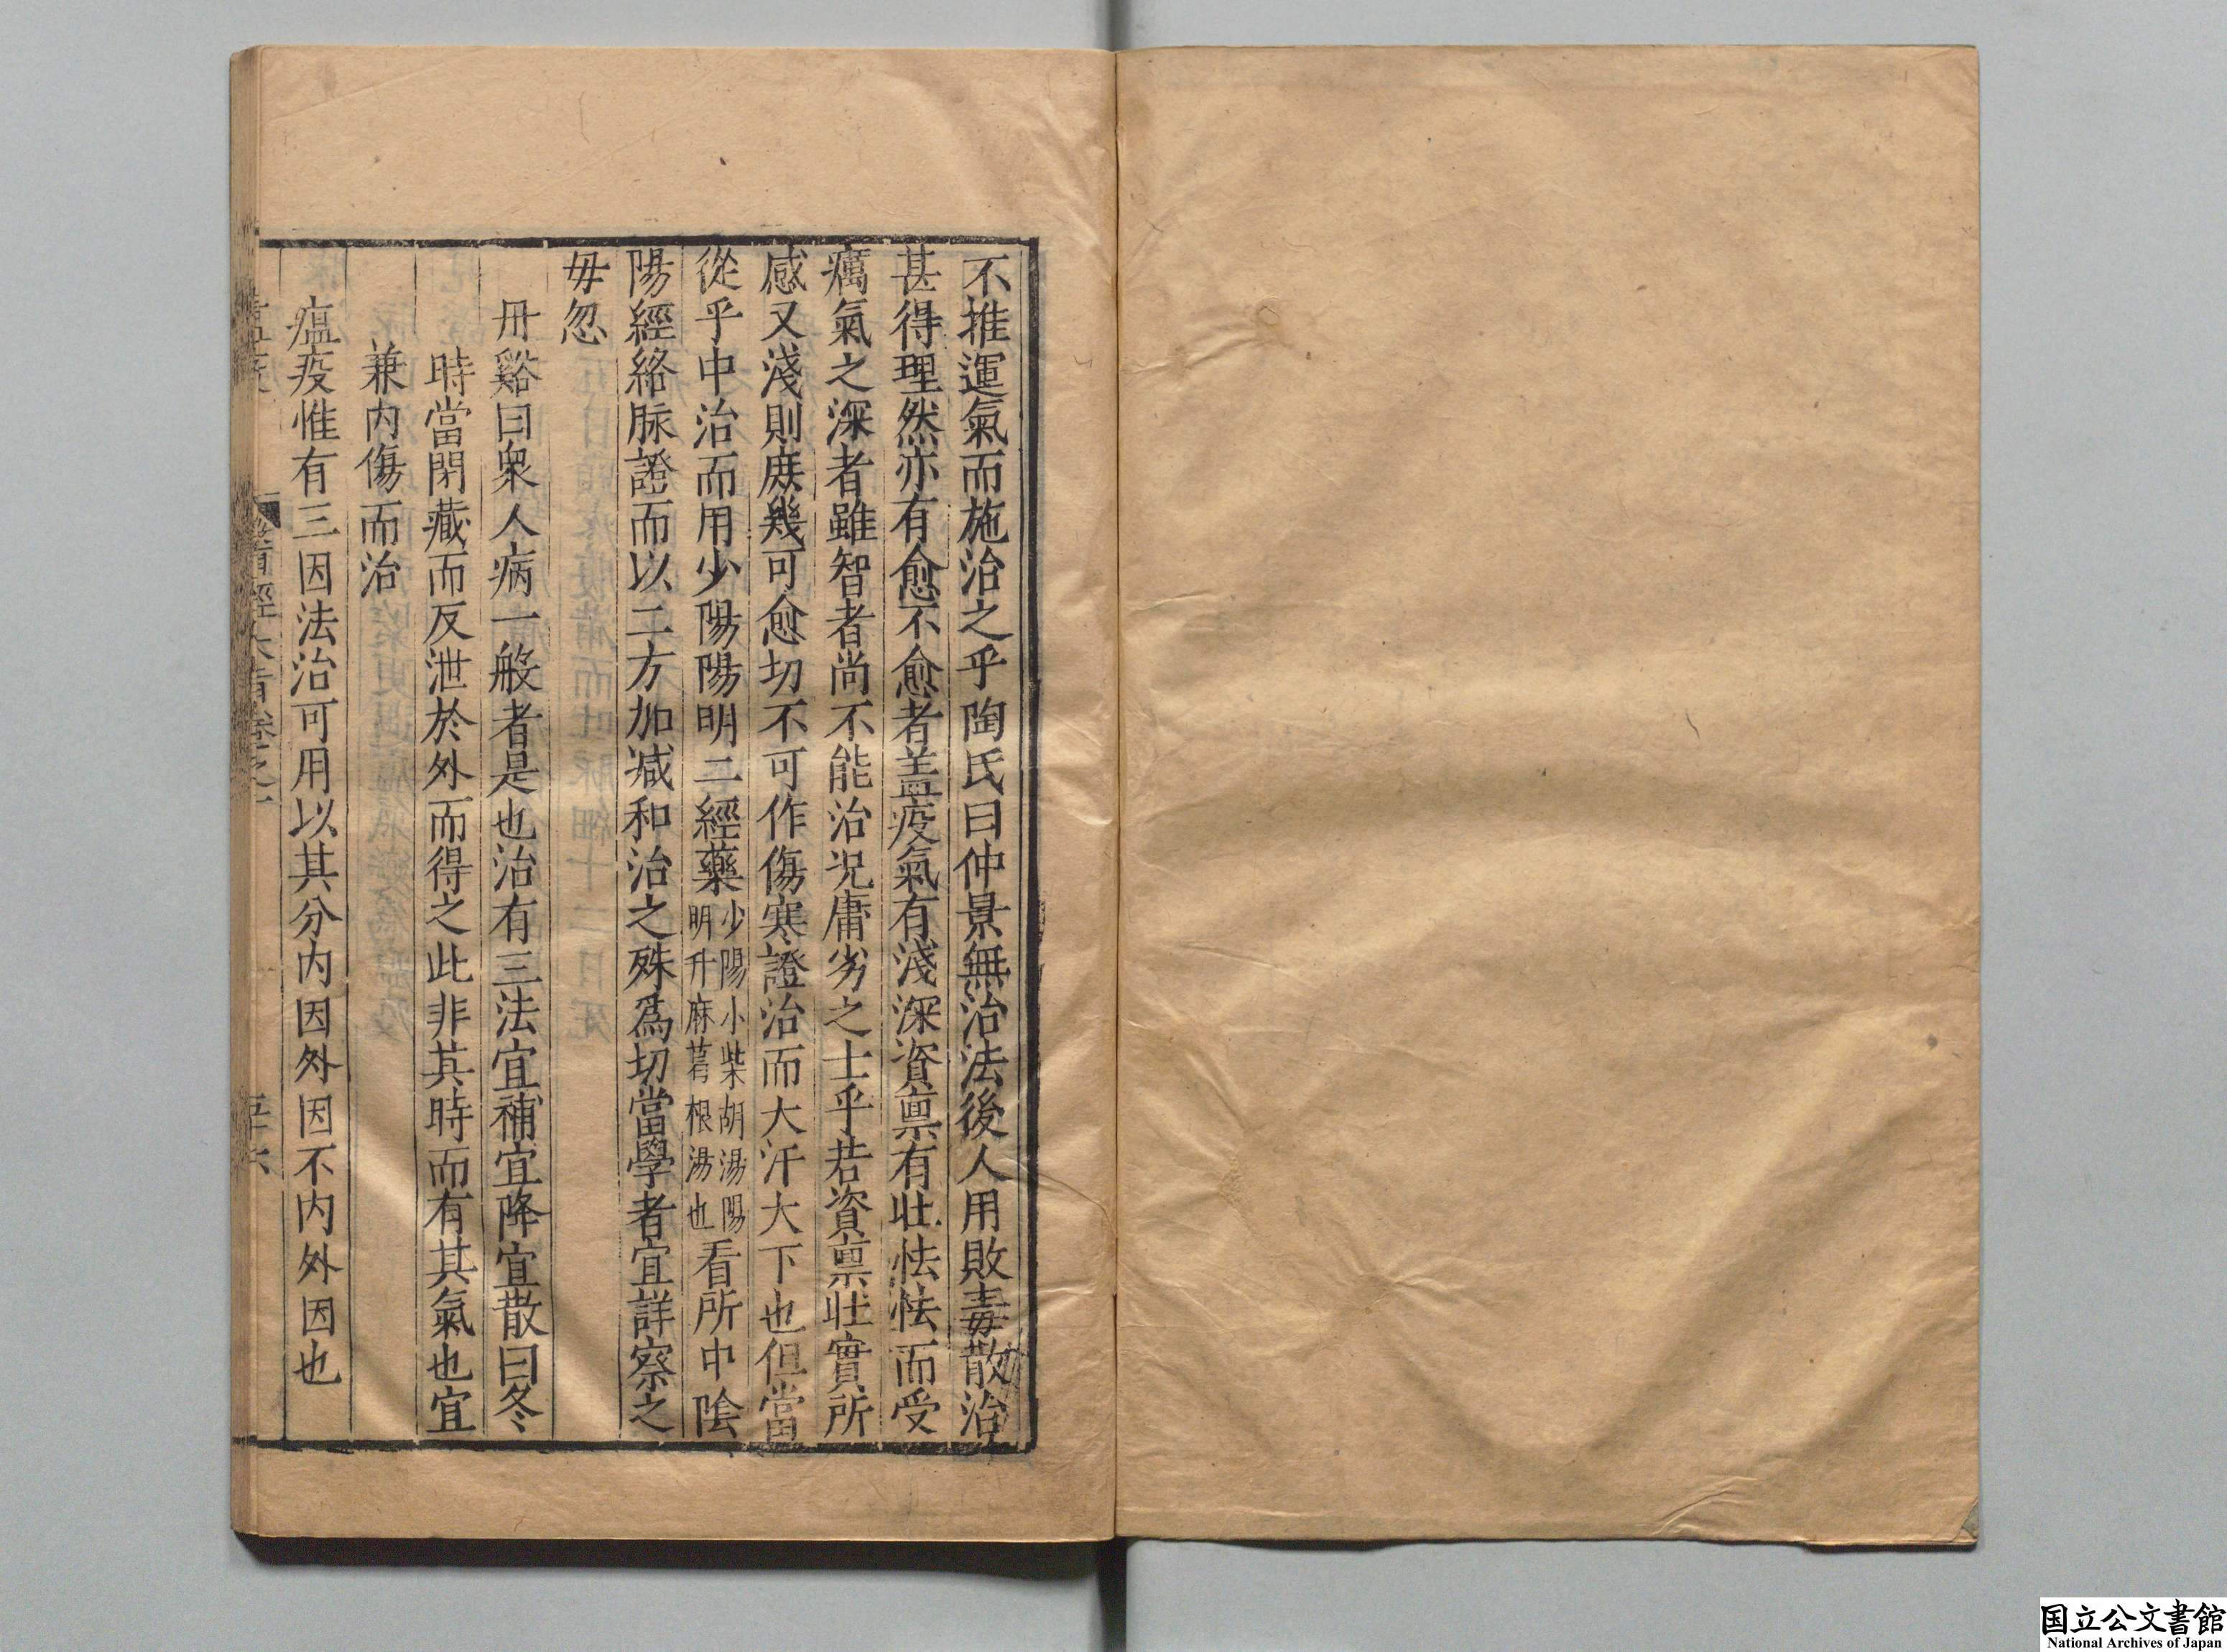 不推運氣而施治之乎陶氏曰仲景無治法後人用敗毒散治
甚得理然亦有愈不愈者盖疫氣有淺深資禀有壮怯怯而受
癘氣之深者雖智者尚不能治况庸劣之士乎若資禀壮實所
感又淺則庶幾可愈切不可作傷寒證治而大汗大下也但當
從乎中治而用少陽陽明二經藥少陽小柴胡湯陽明升麻葛根湯也看所中陰
陽經絡脉證而以二方加減和治之殊為切當學者宜詳察之
毋忽
丹谿曰衆人病一般者是也治有三法宜補宜降宜散曰冬
時當閉藏而反泄於外而得之此非其時而有其氣也宜
兼内傷而治
瘟疫惟有三因法治可用以其分内因外因不内外因也
五十六
国立公文書館
National Archives of Japan